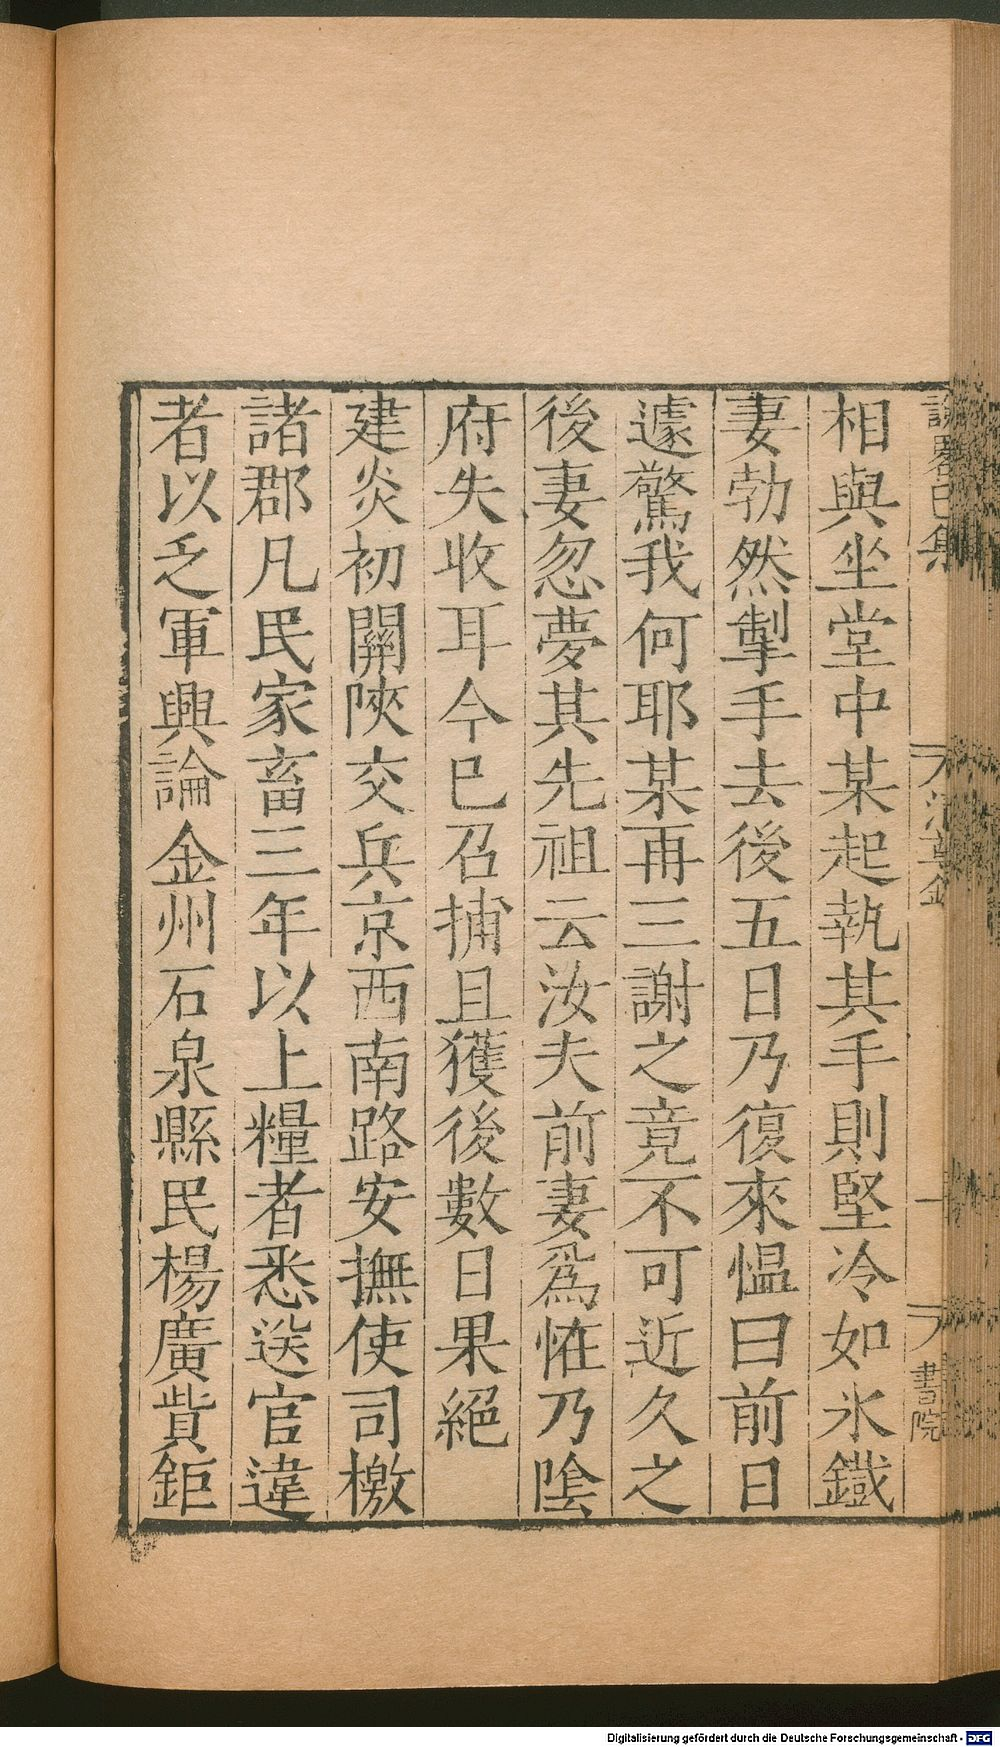 相與坐堂中某起執其手則堅冷如氷鐡
妻勃然掣手去後五日乃復來愠曰前日
遽驚我何耶某再三謝之竟不可近久之
後妻忽夢其先祖云汝夫前妻爲恠乃陰
府失收耳今已召捕且獲後數日果絕
建炎初關陝交兵京西南路安撫使司檄
諸郡凡民家畜三年以上糧者悉送官違
者以乏軍興論金州石泉縣民楊廣貲鉅
集
書院
Digitalisierung gefördert durch die Deutsche Forschungsgemeinschaft - DFG